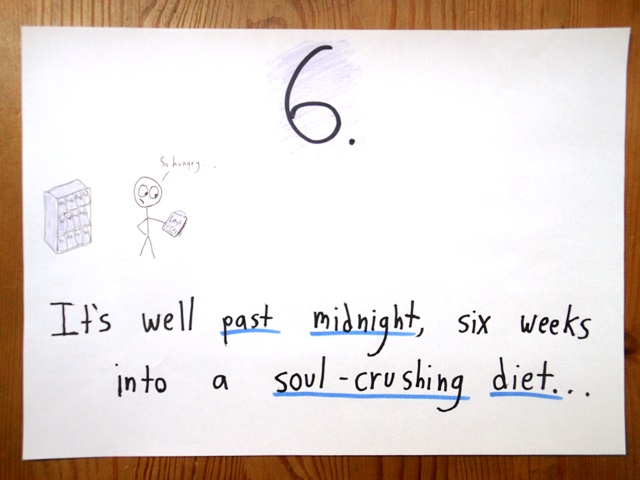 6.
So hungry...
It's well past midnight, six weeks
into a soul-crushing diet...